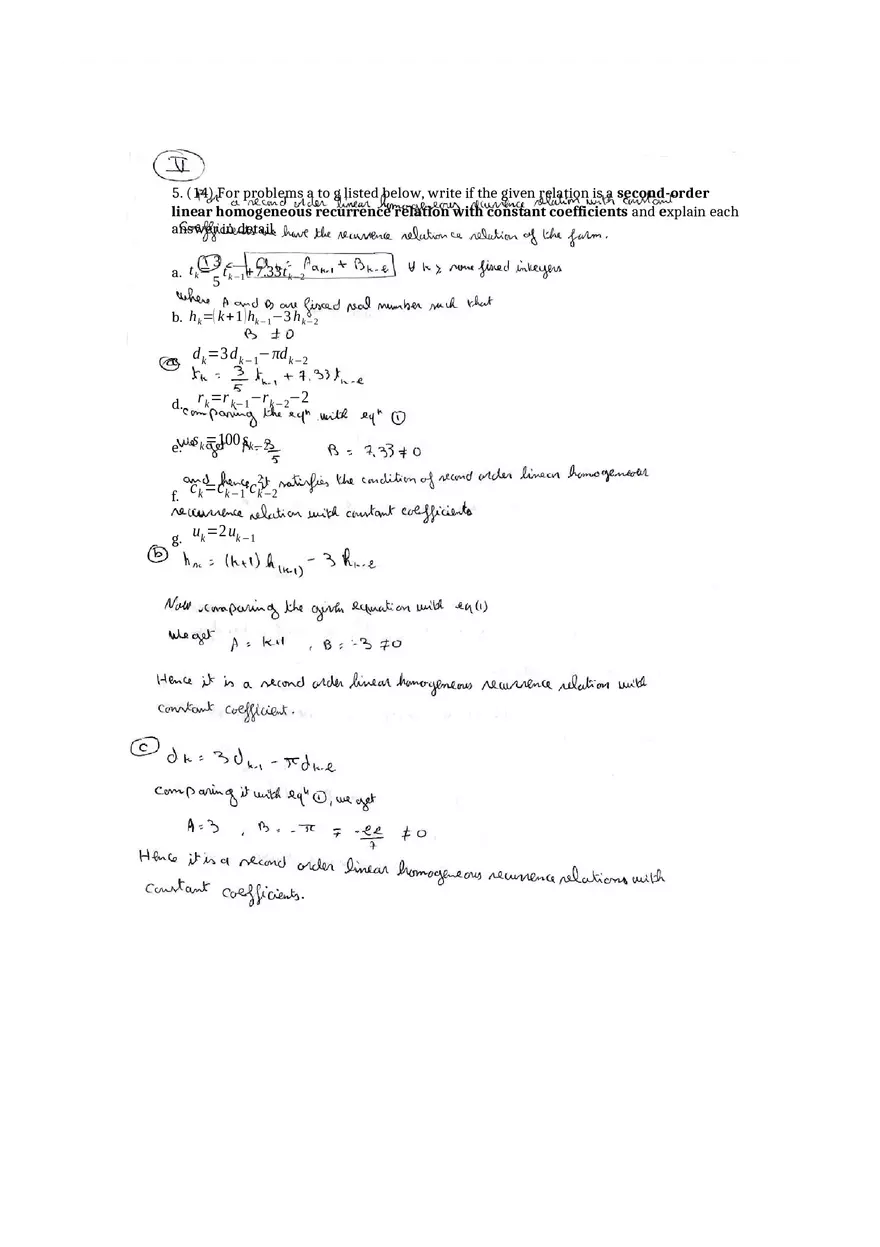 VI
5. (14) For problems a to g listed below, write if the given relation is a second-order
a second order linear homogeneous recurrence relation with constant
linear homogeneous recurrence relation with constant coefficients and explain each
answer in detail.
coefficients have the recurrence relation ce relation of the form.
a. t_k = 3/5 t_{k−1} + 7.33 t_{k−2}
① = A a_{k-1} + B_{k-2} ∀ k ≥ some fixed integers
where A and B are fixed real number such that
b. h_k = (k+1) h_{k−1} − 3 h_{k−2}
B ≠ 0
d_k = 3 d_{k−1} − π d_{k−2}
ⓐ t_k = 3/5 t_{k-1} + 7.33 t_{k-2}
d. r_k = r_{k−1} − r_{k−2} − 2
comparing the eqn with eqn ①
e. s_k = 100 s_{k−2}
we get A = 3/5 B = 7.33 ≠ 0
f. c_k = c_{k−1} c²_{k−2}
and hence it satisfies the condition of second order linear homogeneous
recurrence relation with constant coefficients
g. u_k = 2 u_{k−1}
ⓑ h_k = (k+1) h_{(k-1)} - 3 h_{k-2}
Now comparing the given equation with eq (1)
We get A = k+1 , B = -3 ≠ 0
Hence it is a second order linear homogeneous recurrence relation with
constant coefficient.
ⓒ d_k = 3 d_{k-1} - π d_{k-2}
Comparing it with eqn ①, we get
A = 3 , B = -π = -22/7 ≠ 0
Hence it is a second order linear homogeneous recurrence relations with
constant coefficients.